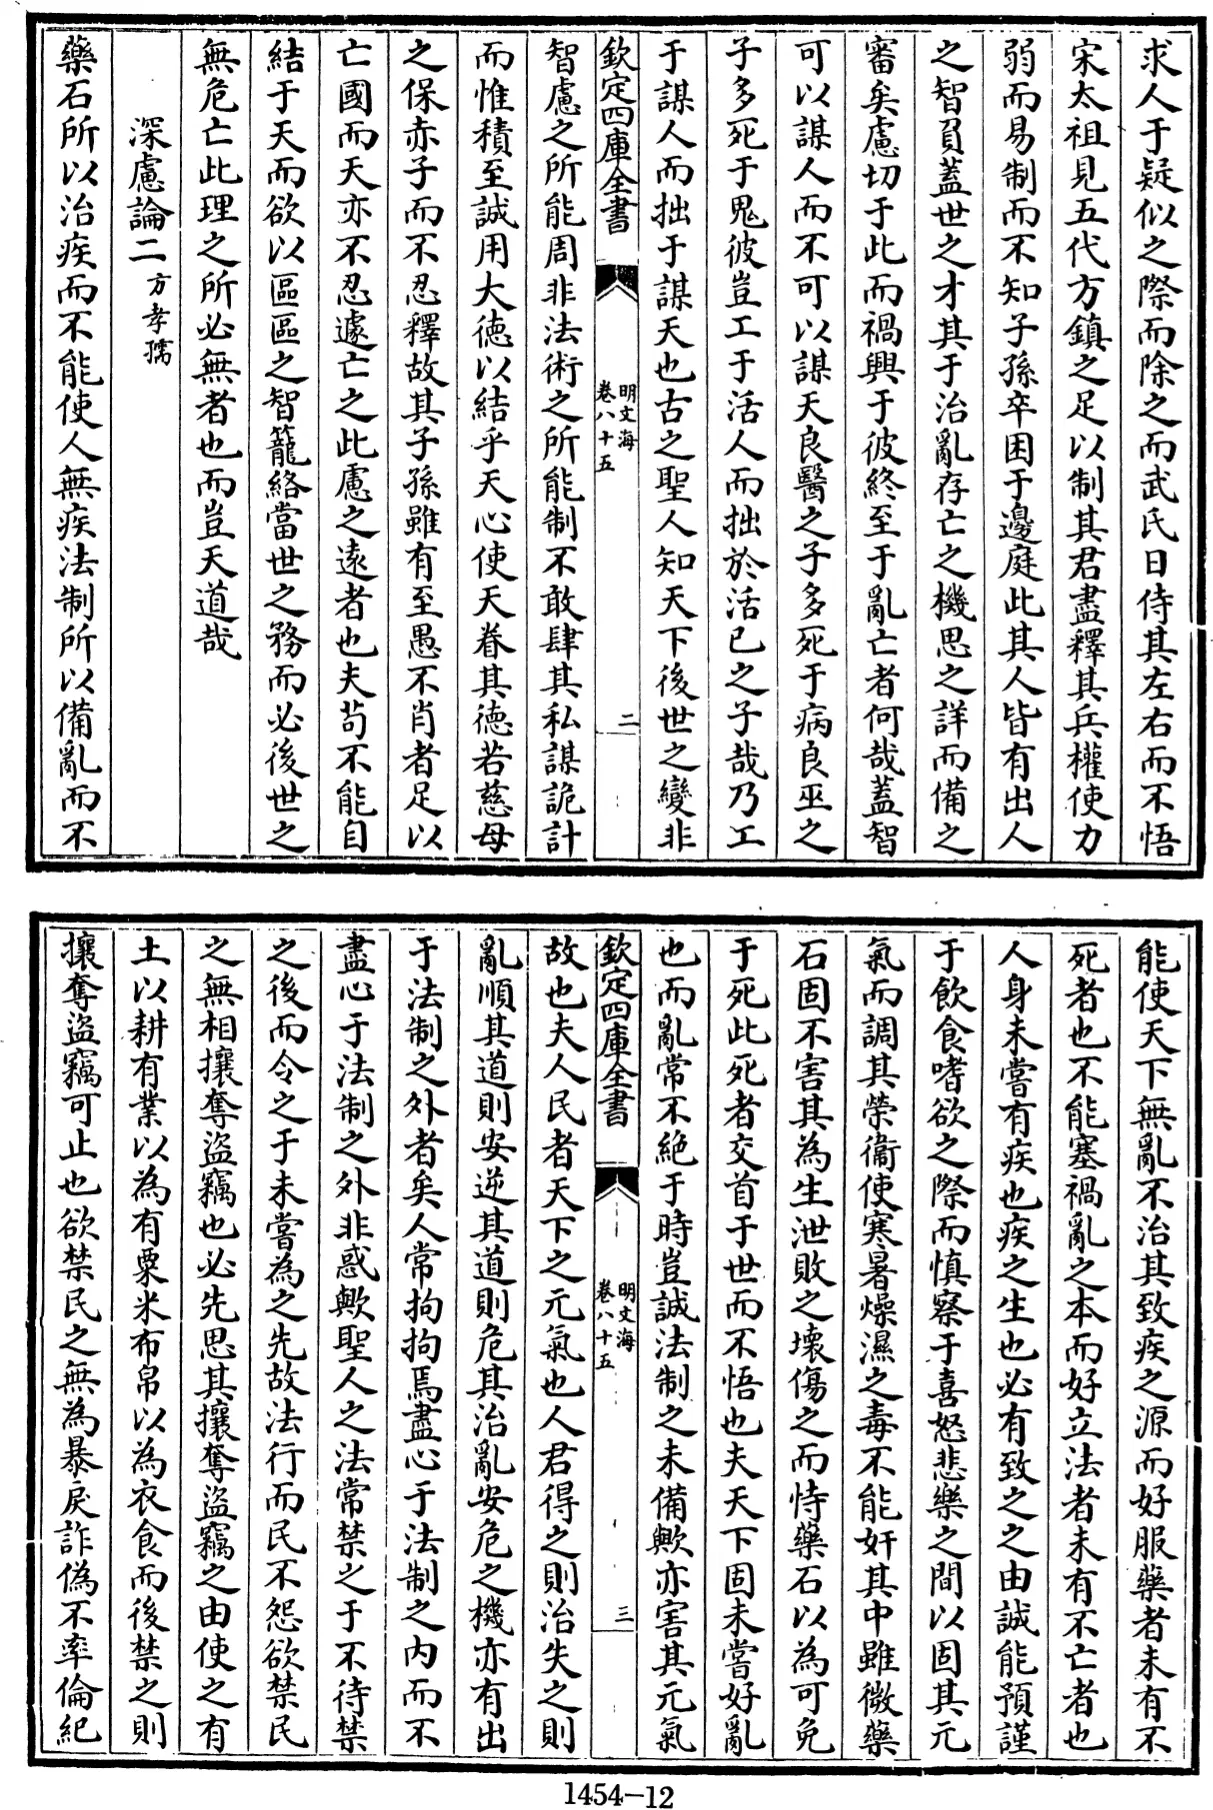 求人于疑似之際而除之而武氏日侍其左右而不悟
宋太祖見五代方鎮之足以制其君盡釋其兵權使力
弱而易制而不知子孫卒困于邊庭此其人皆有出人
之智負蓋世之才其于治亂存亡之機思之詳而備之
審矣慮切于此而禍興于彼終至于亂亡者何哉蓋智
可以謀人而不可以謀天良醫之子多死于病良巫之
子多死于鬼彼豈工于活人而拙於活己之子哉乃工
于謀人而拙于謀天也古之聖人知天下後世之變非
欽定四庫全書
明文海
卷八十五
二
智慮之所能周非法術之所能制不敢肆其私謀詭計
而惟積至誠用大德以結乎天心使天眷其德若慈母
之保赤子而不忍釋故其子孫雖有至愚不肖者足以
亡國而天亦不忍遽亡之此慮之遠者也夫苟不能自
結于天而欲以區區之智籠絡當世之務而必後世之
無危亡此理之所必無者也而豈天道哉
深慮論二 方孝孺
藥石所以治疾而不能使人無疾法制所以備亂而不
能使天下無亂不治其致疾之源而好服藥者未有不
死者也不能塞禍亂之本而好立法者未有不亡者也
人身未嘗有疾也疾之生也必有致之之由誠能預謹
于飲食嗜欲之際而慎察于喜怒悲樂之間以固其元
氣而調其榮衞使寒暑燥濕之毒不能奸其中雖微藥
石固不害其為生泄敗之壞傷之而恃藥石以為可免
于死此死者交首于世而不悟也夫天下固未嘗好亂
也而亂常不絕于時豈誠法制之未備歟亦害其元氣
欽定四庫全書
明文海
卷八十五
三
故也夫人民者天下之元氣也人君得之則治失之則
亂順其道則安逆其道則危其治亂安危之機亦有出
于法制之外者矣人常拘拘焉盡心于法制之内而不
盡心于法制之外非惑歟聖人之法常禁之于不待禁
之後而令之于未嘗為之先故法行而民不怨欲禁民
之無相攘奪盜竊也必先思其攘奪盜竊之由使之有
土以耕有業以為有粟米布帛以為衣食而後禁之則
攘奪盜竊可止也欲禁民之無為暴戾詐偽不率倫紀
1454-12